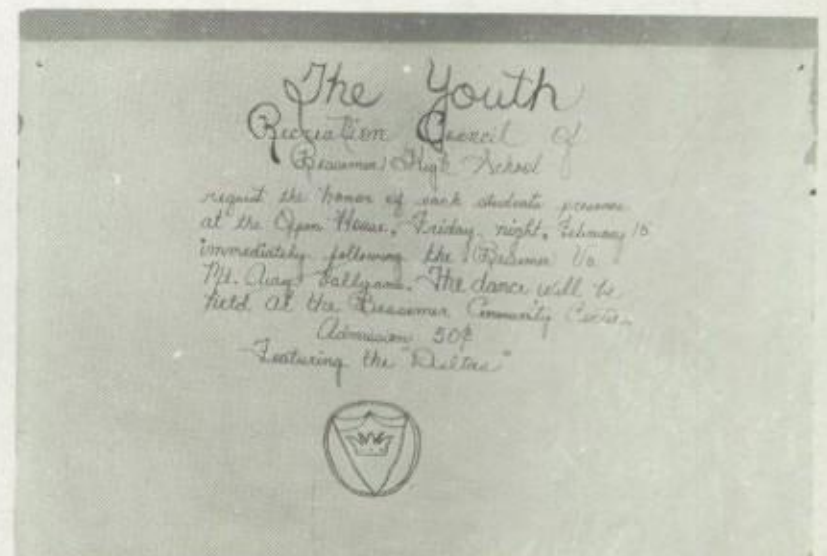 The Youth
Recreation Council of
Bessemer High School
request the honor of each students presence
at the Open House, Friday night, February 15
immediately following the Bessemer Vs
Mt. Avery ballgame. The dance will be
held at the Bessemer Community Center.
Admission 50¢
Featuring the "Deltas"